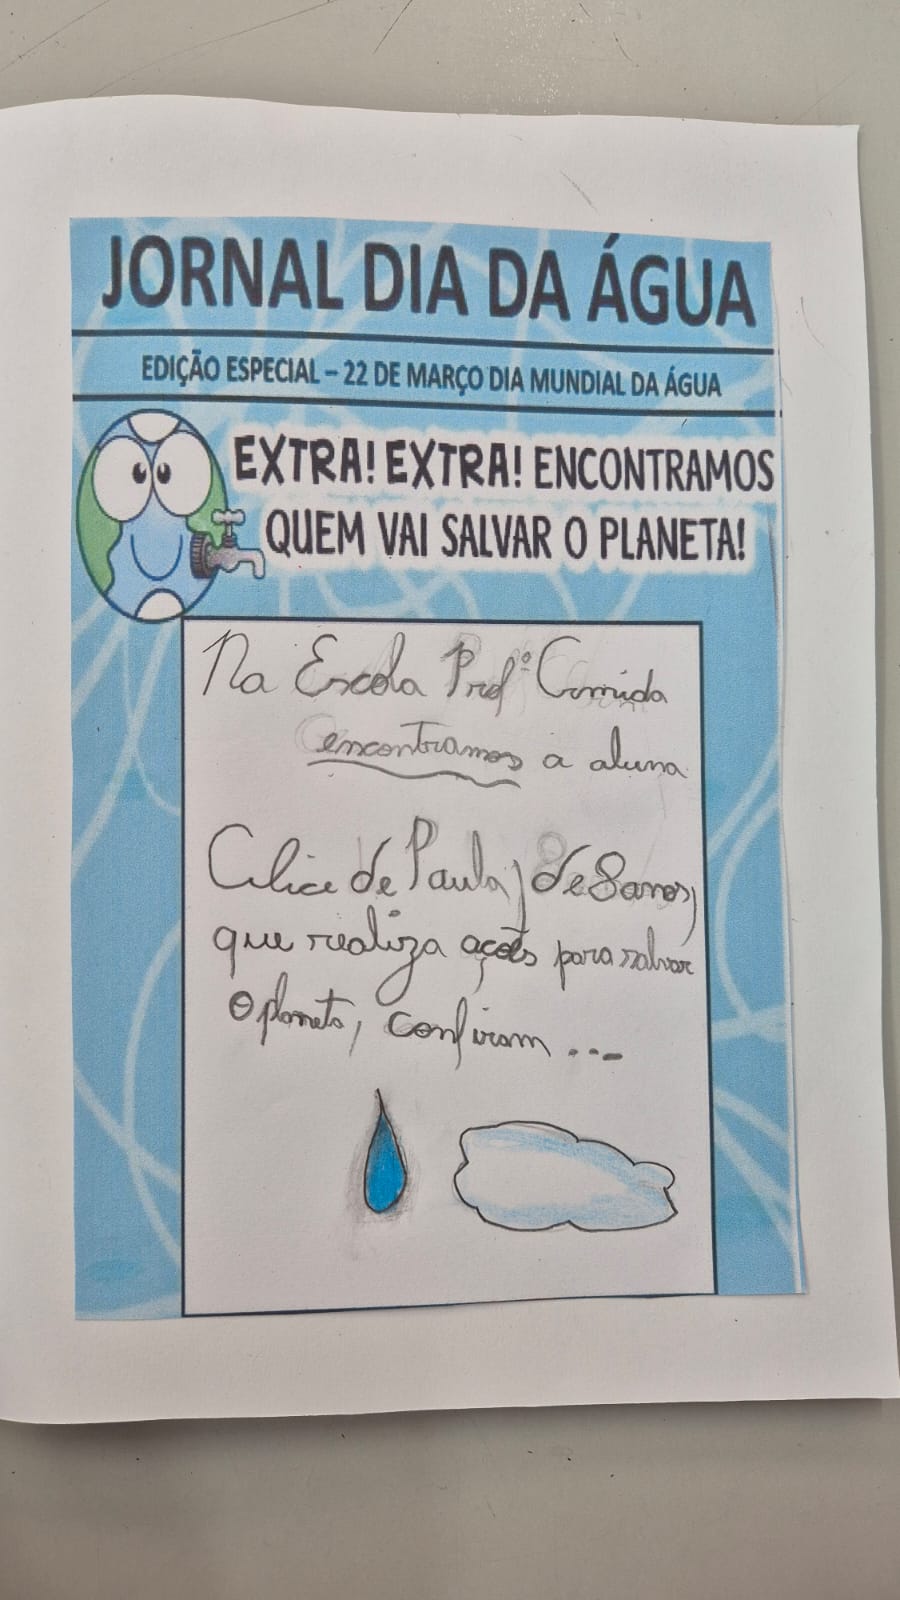 JORNAL DIA DA ÁGUA
EDIÇÃO ESPECIAL – 22 DE MARÇO DIA MUNDIAL DA ÁGUA
EXTRA! EXTRA! ENCONTRAMOS
QUEM VAI SALVAR O PLANETA!
Na Escola Profº
encontramos a aluna
Alice de Paula, de 8 anos,
que realiza ações para salvar
o planeta, confiram ...